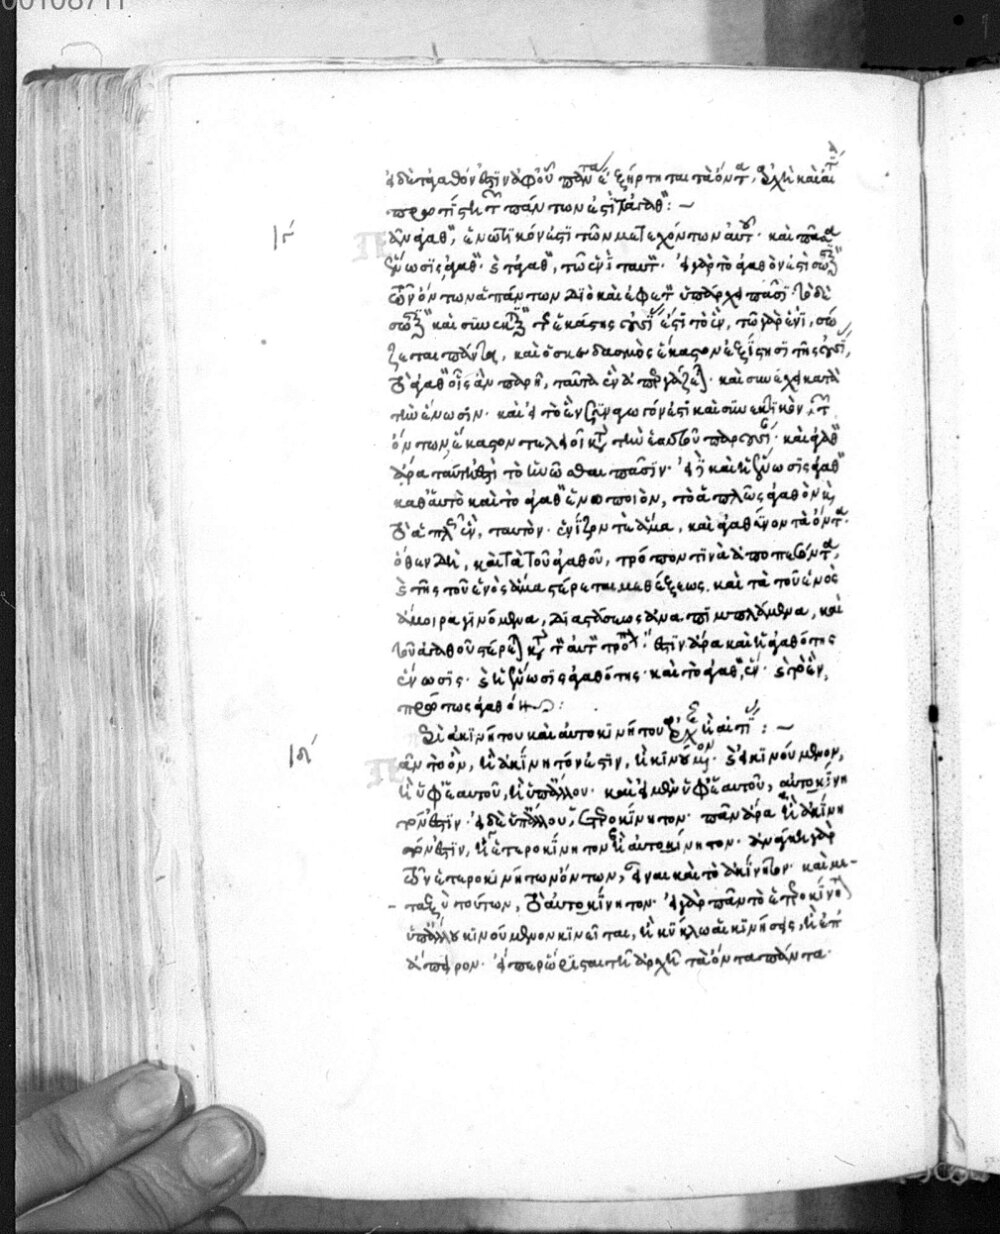 εἰ δὲ τἀγαθόν ἐστιν ἀφ' οὗ πάντα ἐξήρτηται τὰ ὄντα, ἀρχὴ καὶ αἰτία
πρωτίστη τῶν πάντων ἐστὶ τἀγαθόν :~
ιγ´ ᾶν ἀγαθὸν, ἑνωτικόν ἐστι τῶν μετεχόντων αὐτοῦ· καὶ πᾶσα
ἕνωσις ἀγαθόν· καὶ τἀγαθὸν, τῷ ἑνὶ ταυτόν· εἰ γὰρ τὸ ἀγαθόν ἐστι σωστικὸν
τῶν ὄντων ἁπάντων διὸ καὶ ἐφετὸν ὑπάρχει πᾶσι· τὸ δὲ
σωστικὸν καὶ συνεκτικὸν τῆς ἑκάστης οὐσίας ἐστὶ τὸ ἕν, τῷ γὰρ ἑνὶ, σώ
ζεται πάντα, καὶ ὁ σκεδασμὸς ἕκαστον ἐξίστησι τῆς οὐσίας,
τὸ ἀγαθὸν οἷς ἂν παρῇ, ταῦτα ἓν ἀπεργάζεται· καὶ συνέχει κατὰ
τὴν ἕνωσιν· καὶ εἰ τὸ ἓν συναγωγόν ἐστι καὶ συνεκτικὸν τῶν
ὄντων, ἕκαστον τελειοῖ κατὰ τὴν ἑαυτοῦ παρουσίαν· καὶ ἀγαθὸν
ἄρα ταύτῃ ἐστὶ τὸ ἡνῶσθαι πᾶσιν· εἰ καὶ ἡ ἕνωσις ἀγαθὸν
καθ' αὑτὸ καὶ τὸ ἀγαθὸν ἑνοποιὸν, τὸ ἁπλῶς ἀγαθὸν καὶ
τὸ ἁπλῶς ἓν, ταυτόν· ἑνίζον τὲ ἅμα, καὶ ἀγαθῦνον τὰ ὄντα·
ὅθεν δὴ, καὶ τὰ τοῦ ἀγαθοῦ, τρόπον τινὰ ἀποπεσόντα,
καὶ τῆς τοῦ ἑνὸς ἅμα στέρεται μεθέξεως. καὶ τὰ τοῦ ἑνὸς
ἄμοιρα γινόμενα, διαστάσεως ἀναπιμπλάμενα, καὶ
τοῦ ἀγαθοῦ στέρεται κατὰ τὸν αὐτὸν τρόπον· ἔστιν ἄρα καὶ ἡ ἀγαθότης
ἕνωσις· καὶ ἡ ἕνωσις ἀγαθότης· καὶ τὸ ἀγαθὸν, ἕν· καὶ τὸ ἓν,
πρώτως ἀγαθόν :
Περὶ ἀκινήτου καὶ αὐτοκινήτου ἀρχῆς ἢ αἰτίας :~
ιδ´ ᾶν τὸ ὂν, ἢ ἀκίνητόν ἐστιν, ἢ κινούμενον· καὶ εἰ κινούμενον,
ἢ ὑφ' ἑαυτοῦ, ἢ ὑπ' ἄλλου· καὶ εἰ μὲν ὑφ' ἑαυτοῦ, αὐτοκίνη
τόν ἐστιν· εἰ δὲ ὑπ' ἄλλου, ἑτεροκίνητον· πᾶν ἄρα ἢ ἀκίνη
τόν ἐστιν, ἢ ἑτεροκίνητον ἢ αὐτοκίνητον· ἀνάγκη γὰρ
τῶν ἑτεροκινήτων ὄντων, εἶναι καὶ τὸ ἀκίνητον· καὶ με-
ταξὺ τούτων, τὸ αὐτοκίνητον· εἰ γὰρ πᾶν τὸ ἑτεροκίνητον
ὑπ' ἄλλου κινούμενον κινεῖται, ἢ κύκλῳ αἱ κινήσεις, ἢ ἐπ'
ἄπειρον· εἴπερ ὥρισται τῇ ἀρχῇ τὰ ὄντα πάντα·